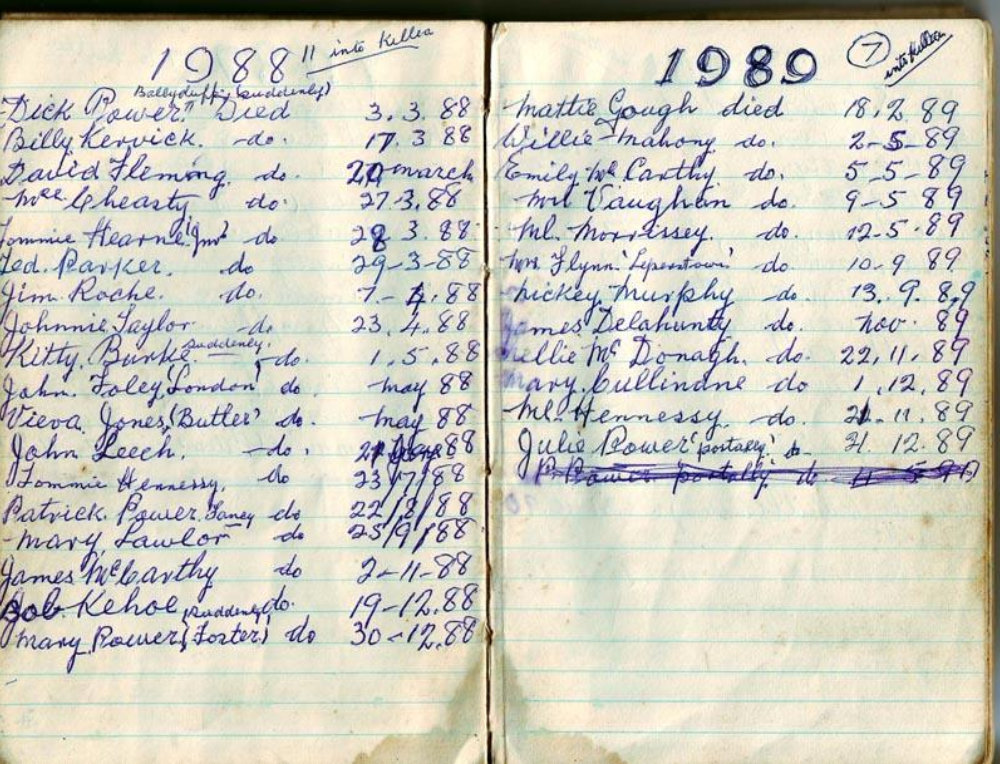 1988 11 into Killea
Ballyduff (suddenly)
Dick Power" Died 3.3.88
Billy Kervick. do. 17.3 88
David Fleming. do. march
Cheasty do. 27.3.88
Tommie Hearne 'Jnr' do 28 3.88
Ted. Parker. do 29-3-88
Jim. Roche. do. 7-4.88
Johnnie Taylor. do 23.4.88
Kitty. Burke suddenley. do. 1.5.88
John. Foley 'London' do. may 88
Vieva Jones, (Butler' do. may 88
John Leech. do. 88
Tommie Hennessy. do 23/7/88
Patrick. Power, Janey do 22/8/88
Mary Lawlor do 25/9/88
James McCarthy do 2-11-88
Bob Kehoe, suddenly do. 19-12.88
Mary Power (Foster) do 30-12.88
1989 7 into Killea
Mattie Gough died 18.2.89
Willie Mahony do. 2-5-89
Emily Mc Carthy do. 5-5-89
Mrs Vaughan do. 9-5 89
Ml. Morrissey. do. 12-5.89
Mrs Flynn do 10-9 89
Nickey, Murphy do. 13.9.89
James Delahunty do. Nov. 89
Nellie Mc Donagh. do. 22.11.89
Mary. Cullinane do 1.12.89
Ml. Hennessy. do. 11.89
Julie Power 'portally' do 21.12.89
P. Power portally do